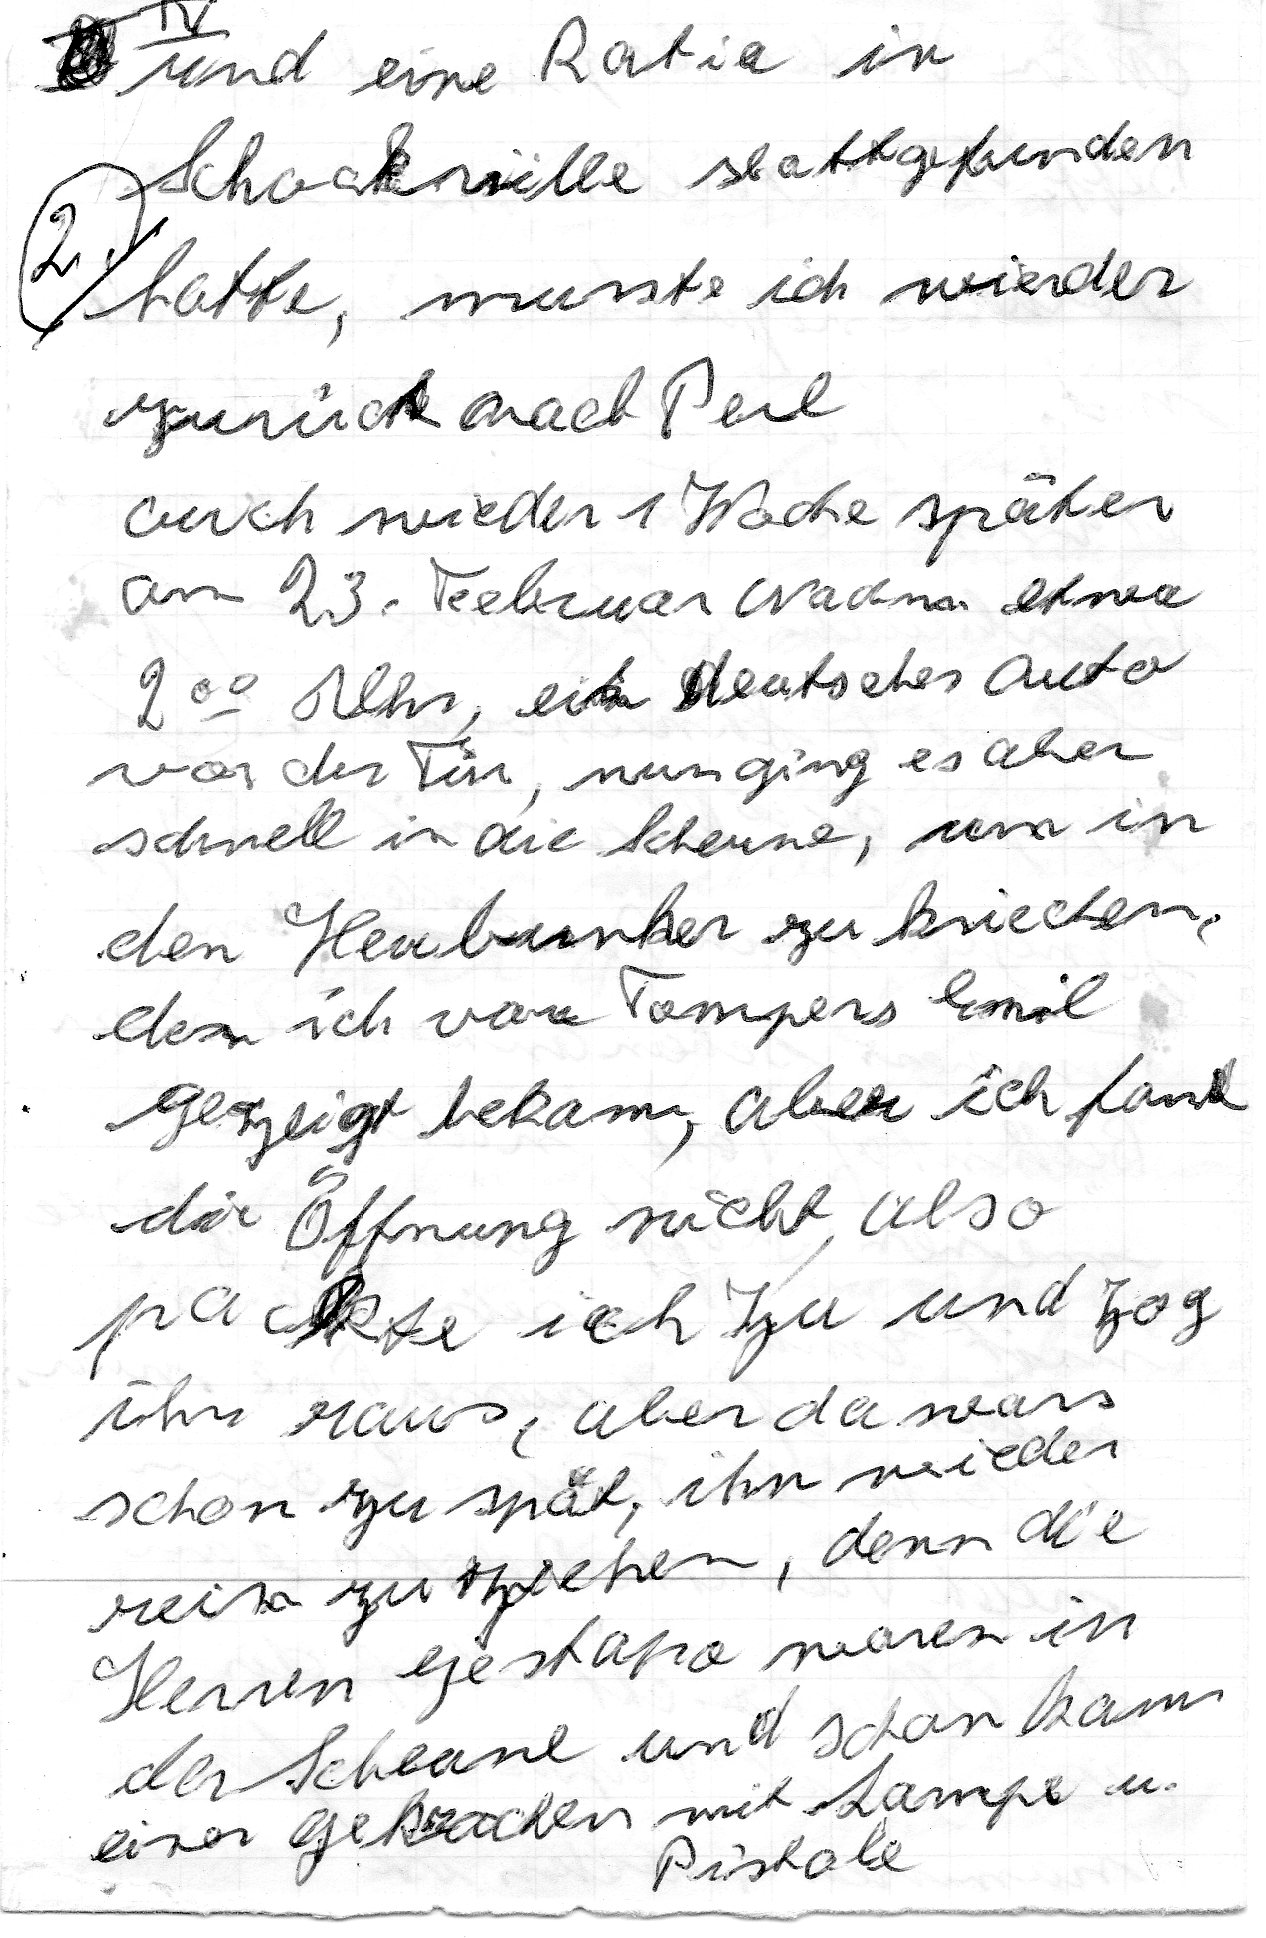 IV
und eine Ratia in
Schockville stattgefunden
2.
hatte, musste ich wieder
zurück nach Perl
auch wieder 1 Woche später
am 23. Feebruar Nachm. etwa
2 00 Uhr, ein deutsches Auto
vor der Tür, nun ging es aber
schnell in die Scheune, um in
den Heubunker zu kriechen,
den ich von Tompers Emil
gezeigt bekam, aber ich fand
die Öffnung nicht, also
packte ich zu und zog
ihn raus, aber da wars
schon zu spät, ihn wieder
rein zu ziehen, denn die
Herren Gestapo waren in
der Scheune und schon kam
einer gekrochen mit Lampe u.
Pistole